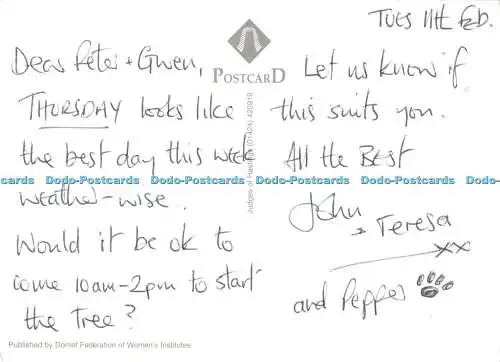 TUES 11th Feb.
Dear Peter + Gwen,
THURSDAY looks like
the best day this week
weather-wise.
Would it be ok to
come 10am-2pm to start
the Tree?
POSTCARD
Judges of Hastings (01424) 420919
Let us know if
this suits you.
All the Best
John
+ Teresa
xx
and Pepper
cards Dodo-Postcards Dodo-Postcards Dodo-Postcards Dodo-Postcards Dodo-Postcards
Published by Dorset Federation of Women's Institutes